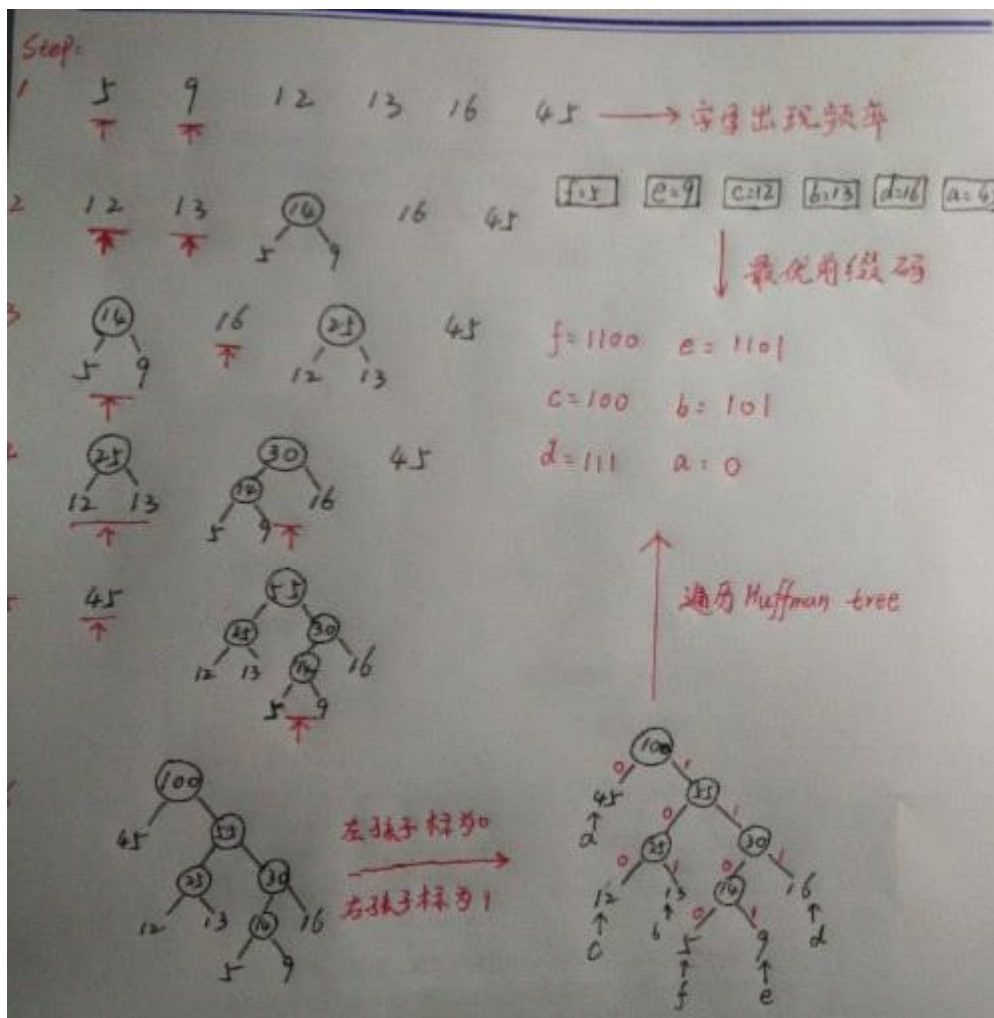 Step:
1 5 9 12 13 16 45 → 字母出现频率
f=5 e=9 c=12 b=13 d=16 a=4
2 12 13 14 16 45
5 9
最优前缀码
3 14 16 25 45
5 9 12 13
f=1100 e=1101
c=100 b=101
d=111 a=0
25 30 45
12 13 14 16
5 9
45 55
25 30
12 13 14 16
5 9
遍历Huffman tree
100
45 55
25 30
12 13 14 16
5 9
左孩子标为0
右孩子标为1
100
0 1
45 55
a 0 1
25 30
0 1 0 1
12 13 14 16
c b 0 1 d
5 9
f e